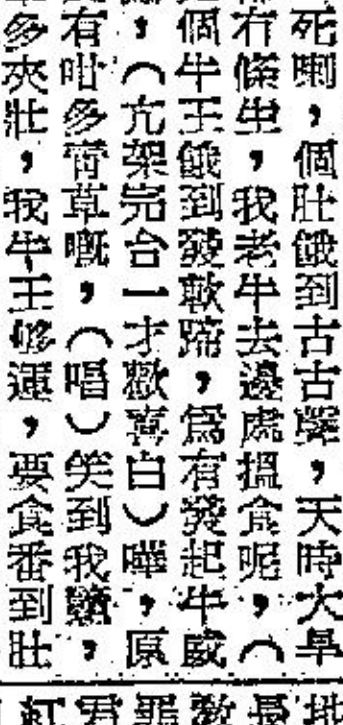 死喇，個肚餓到古古聲，天時大旱
冇條生，我老牛去邊處搵食呢，（
個牛王餓到發軟蹄，爲有發起牛威
，（亢架完台一才歡喜白）嘩，原
有咁多青草嘅，（唱）笑到我，
多夾壯，我牛王够運，要食番到肚